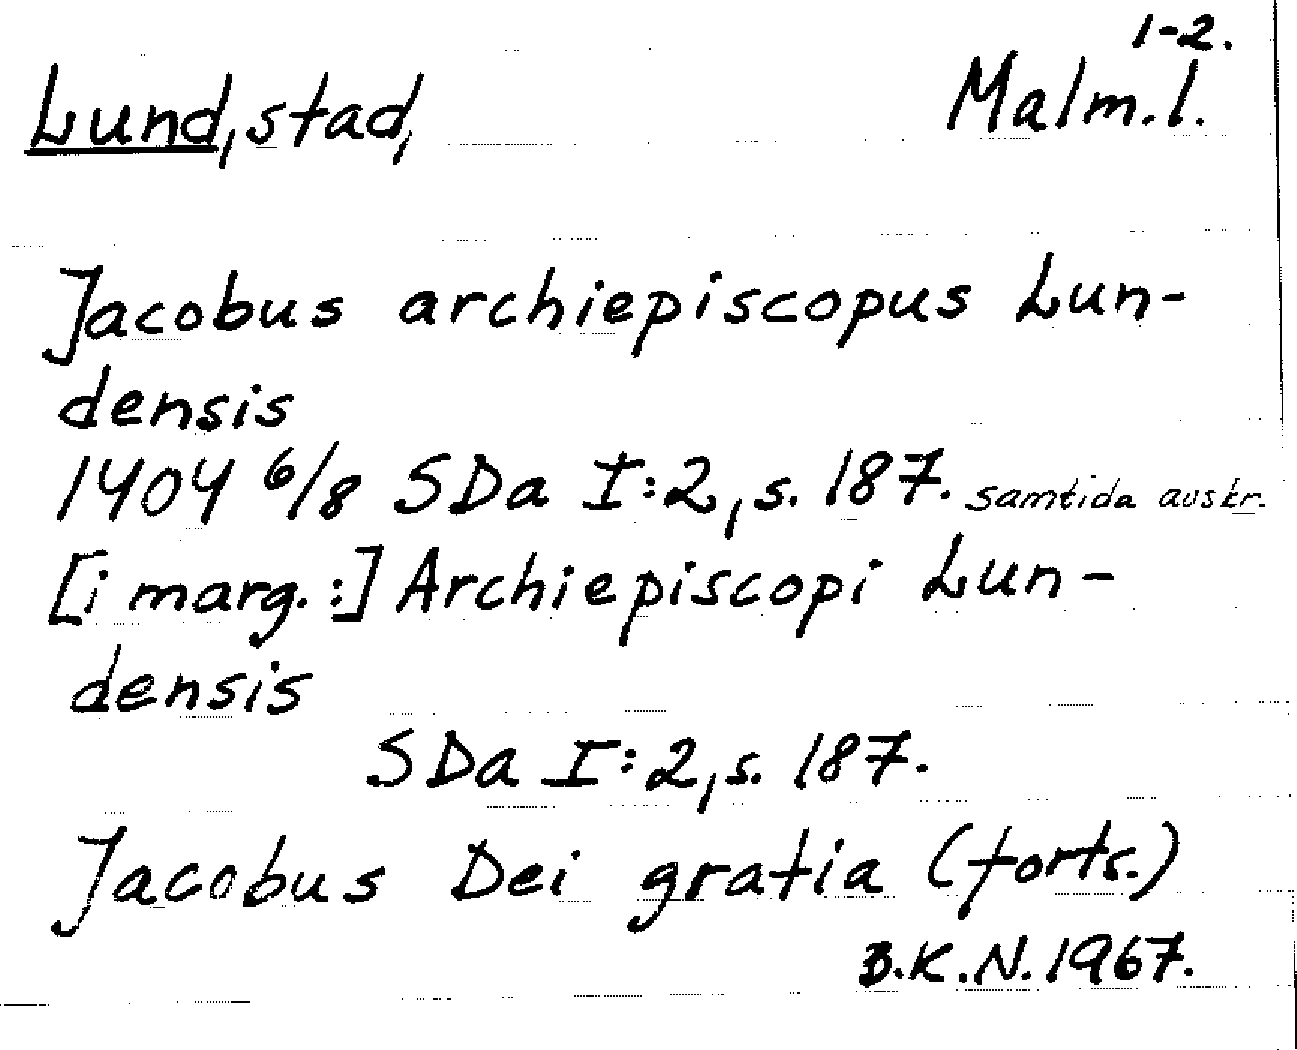 1-2.
Lund, stad, Malm.l.
Jacobus archiepiscopus Lun-
densis
1404 6/8 SDa I:2, s. 187. samtida avskr.
[i marg.:] Archiepiscopi Lun-
densis
SDa I:2, s. 187.
Jacobus Dei gratia (forts.)
B.K.N. 1967.